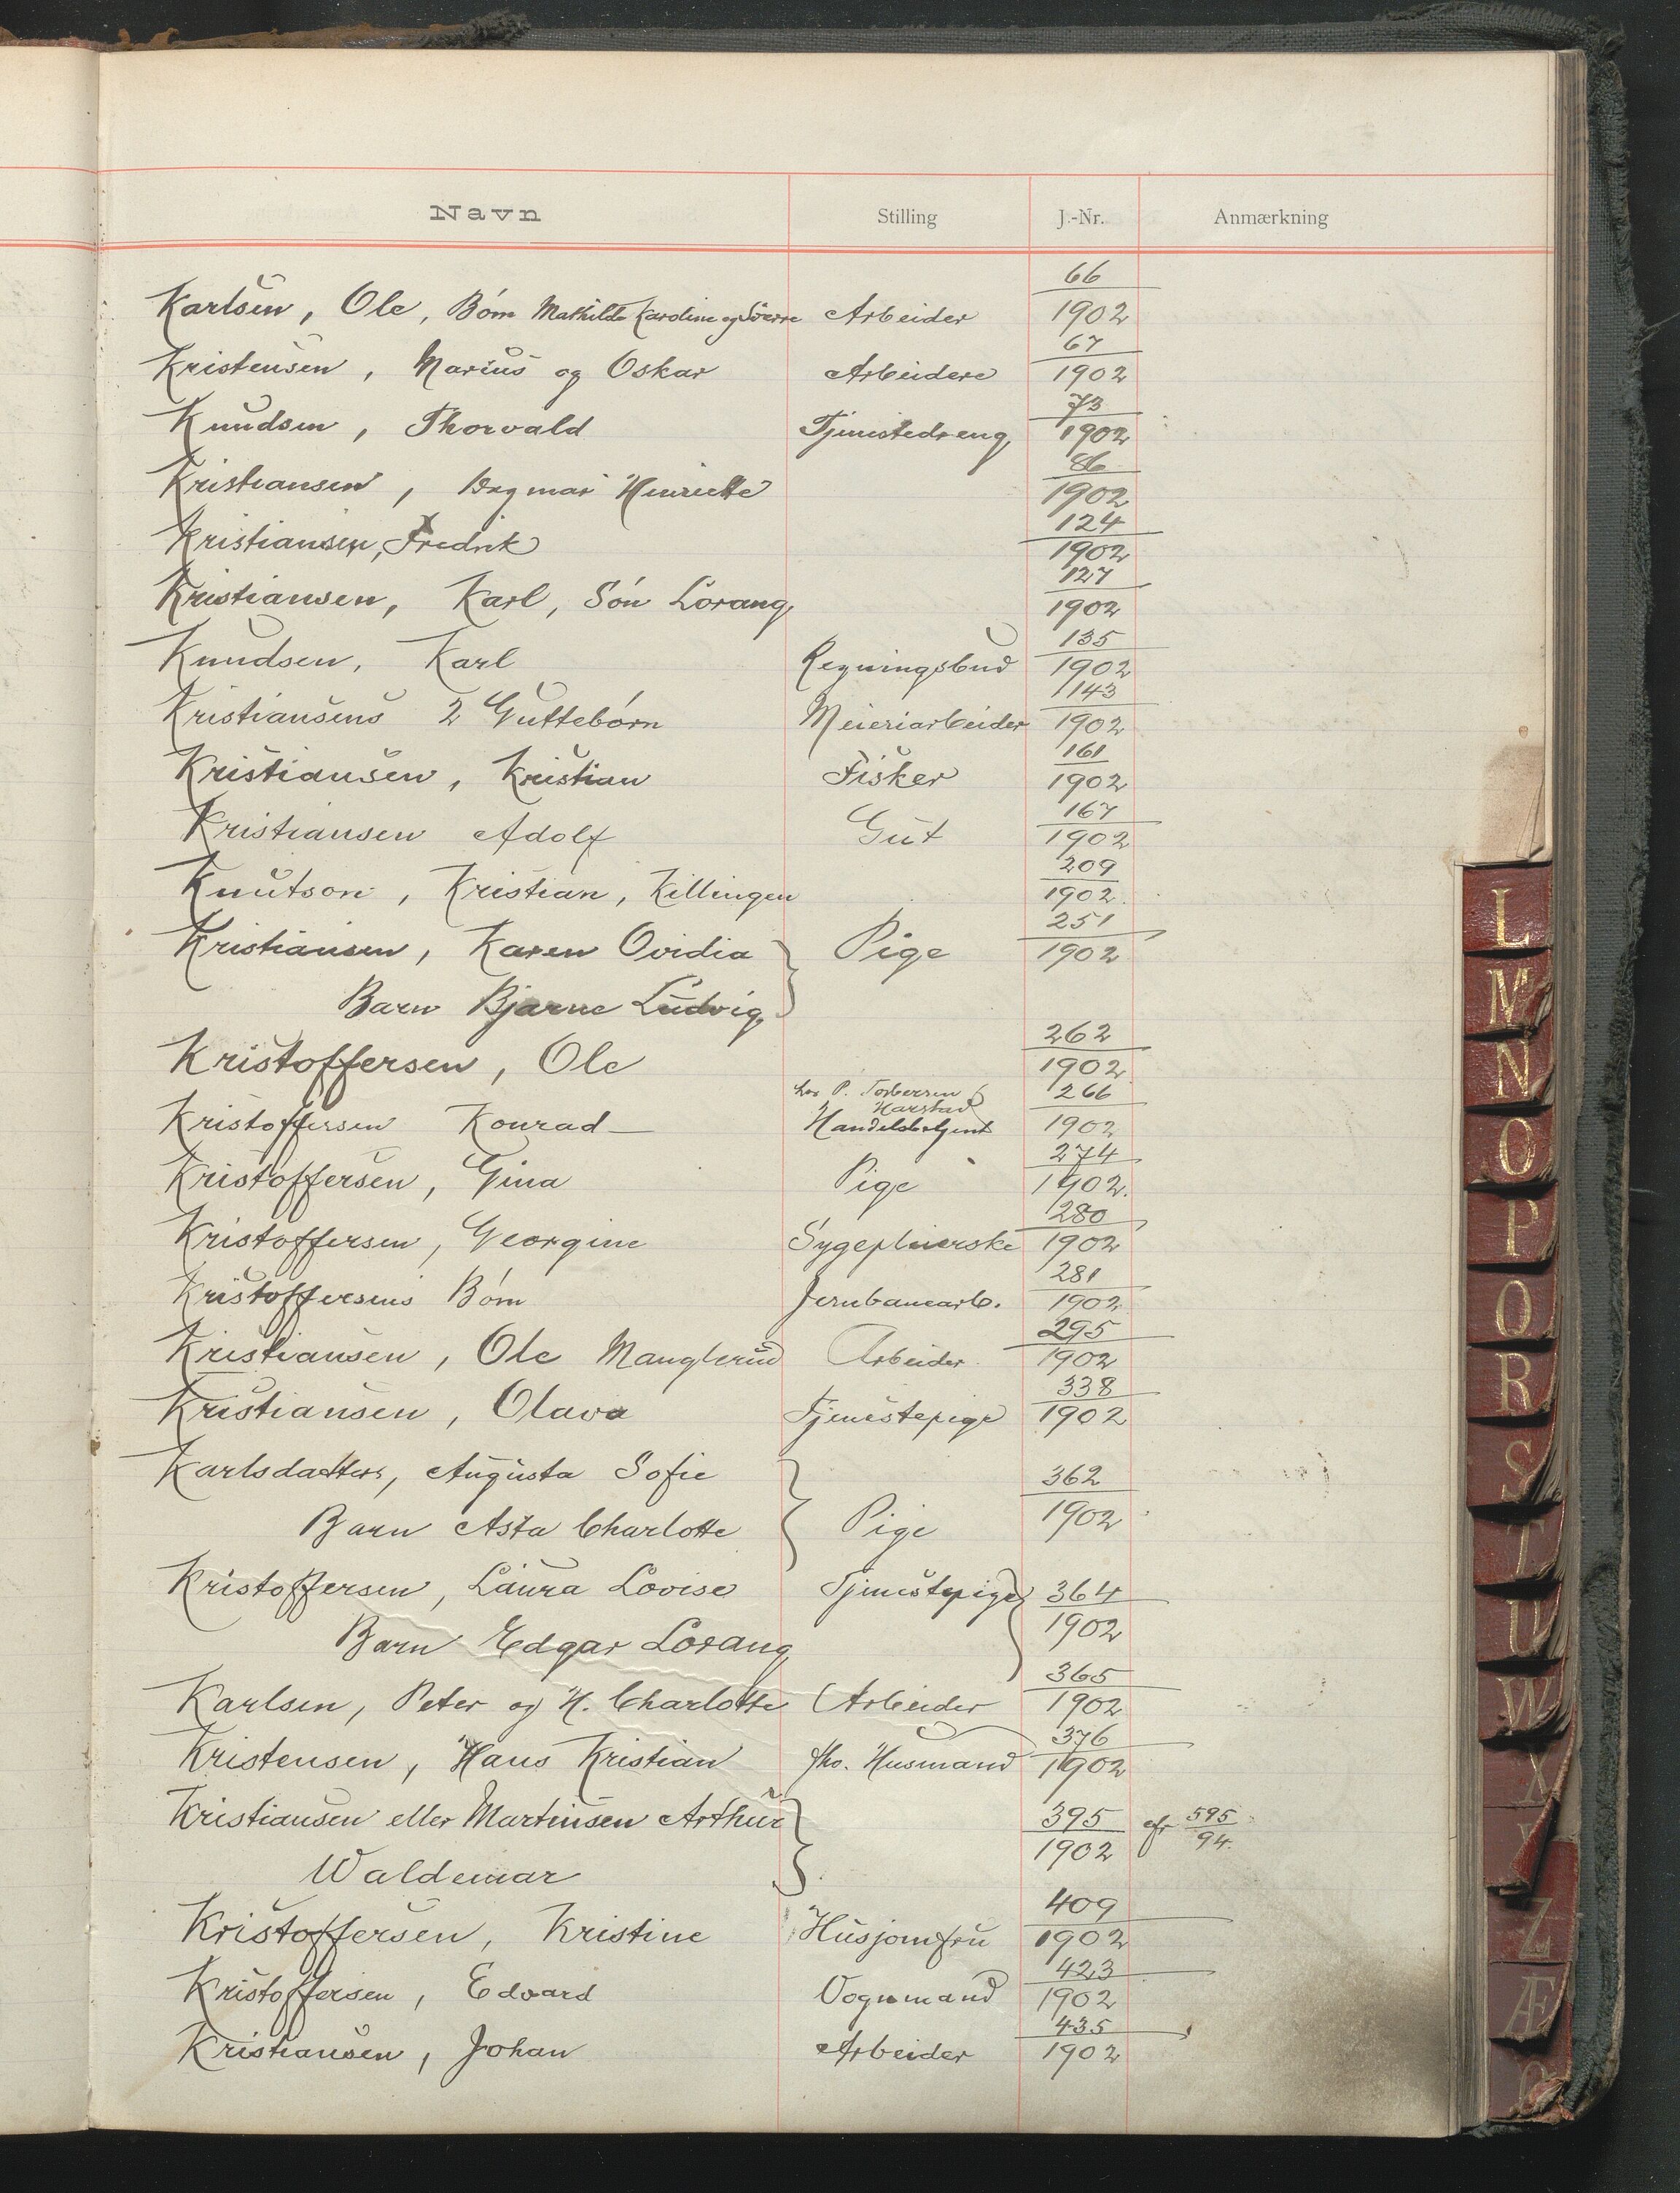 Navn Stilling J.-Nr. Anmærkning
66
Karlsen, Ole, Børn Mathilde Karoline og Sverre Arbeider 1902
67
Kristensen, Marius og Oskar Arbeidere 1902
73
Knudsen, Thorvald Tjenestedreng 1902
86
Kristiansen, Dagmar Henriette 1902
124
Kristiansen, Fredrik 1902
127
Kristiansen, Karl, Søn Lorang 1902
135
Knudsen, Karl Regningsbud 1902
143
Kristiansens 2 Guttebørn Meieriarbeider 1902
161
Kristiansen, Kristian Fisker 1902
167
Kristiansen Adolf Gut 1902
209
Knutson, Kristian, Killingen 1902
251
Kristiansen, Karen Ovidia Pige 1902
Barn Bjarne Ludvig
262
Kristoffersen, Ole 1902
hos P. Torbersen 266
Harstad
Kristoffersen Konrad Handelsbetjent 1902
274
Kristoffersen, Gina Pige 1902.
280
Kristoffersen, Georgine Sygepleierske 1902
281
Kristoffersens Børn Jernbanearb. 1902
295
Kristiansen, Ole Manglerud Arbeider 1902
338
Kristiansen, Olava Tjenestepige 1902
Karlsdatter, Augusta Sofie 362
Barn Asta Charlotte Pige 1902
Kristoffersen, Laura Lovise Tjenestepige 364
Barn Edgar Lorang 1902
365
Karlsen, Peter og H. Charlotte Arbeider 1902
376
Kristensen, Hans Kristian fho. Husmand 1902
Kristiansen eller Martinsen Arthur 395 cfr 595
Waldemar 1902 94.
409
Kristoffersen, Kristine Husjomfru 1902
423
Kristoffersen, Edvard Vognmand 1902
435
Kristiansen, Johan Arbeider 1902
L
M
N
O
P
Q
R
S
T
U
W
X
Y
Z
Æ
Ø